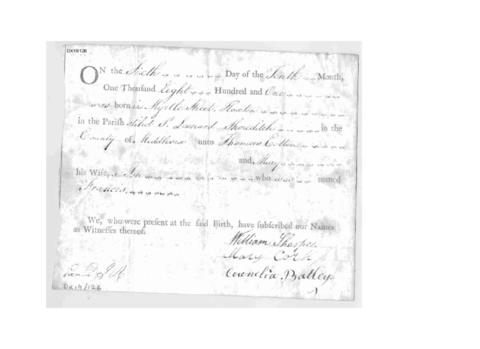 DX19/126
ON the Sixth Day of the Tenth Month,
One Thousand Eight Hundred and One
was born in Myrtle Street, Hoxton
in the Parish of St. Leonard Shoreditch in the
County of Middlesex unto Thomas
and Mary
his Wife, a who was named
Francis
We, who were present at the said Birth, have subscribed our Names
as Witnesses thereof.
William Sharpe
Mary
Cornelia Batley
DX19/126